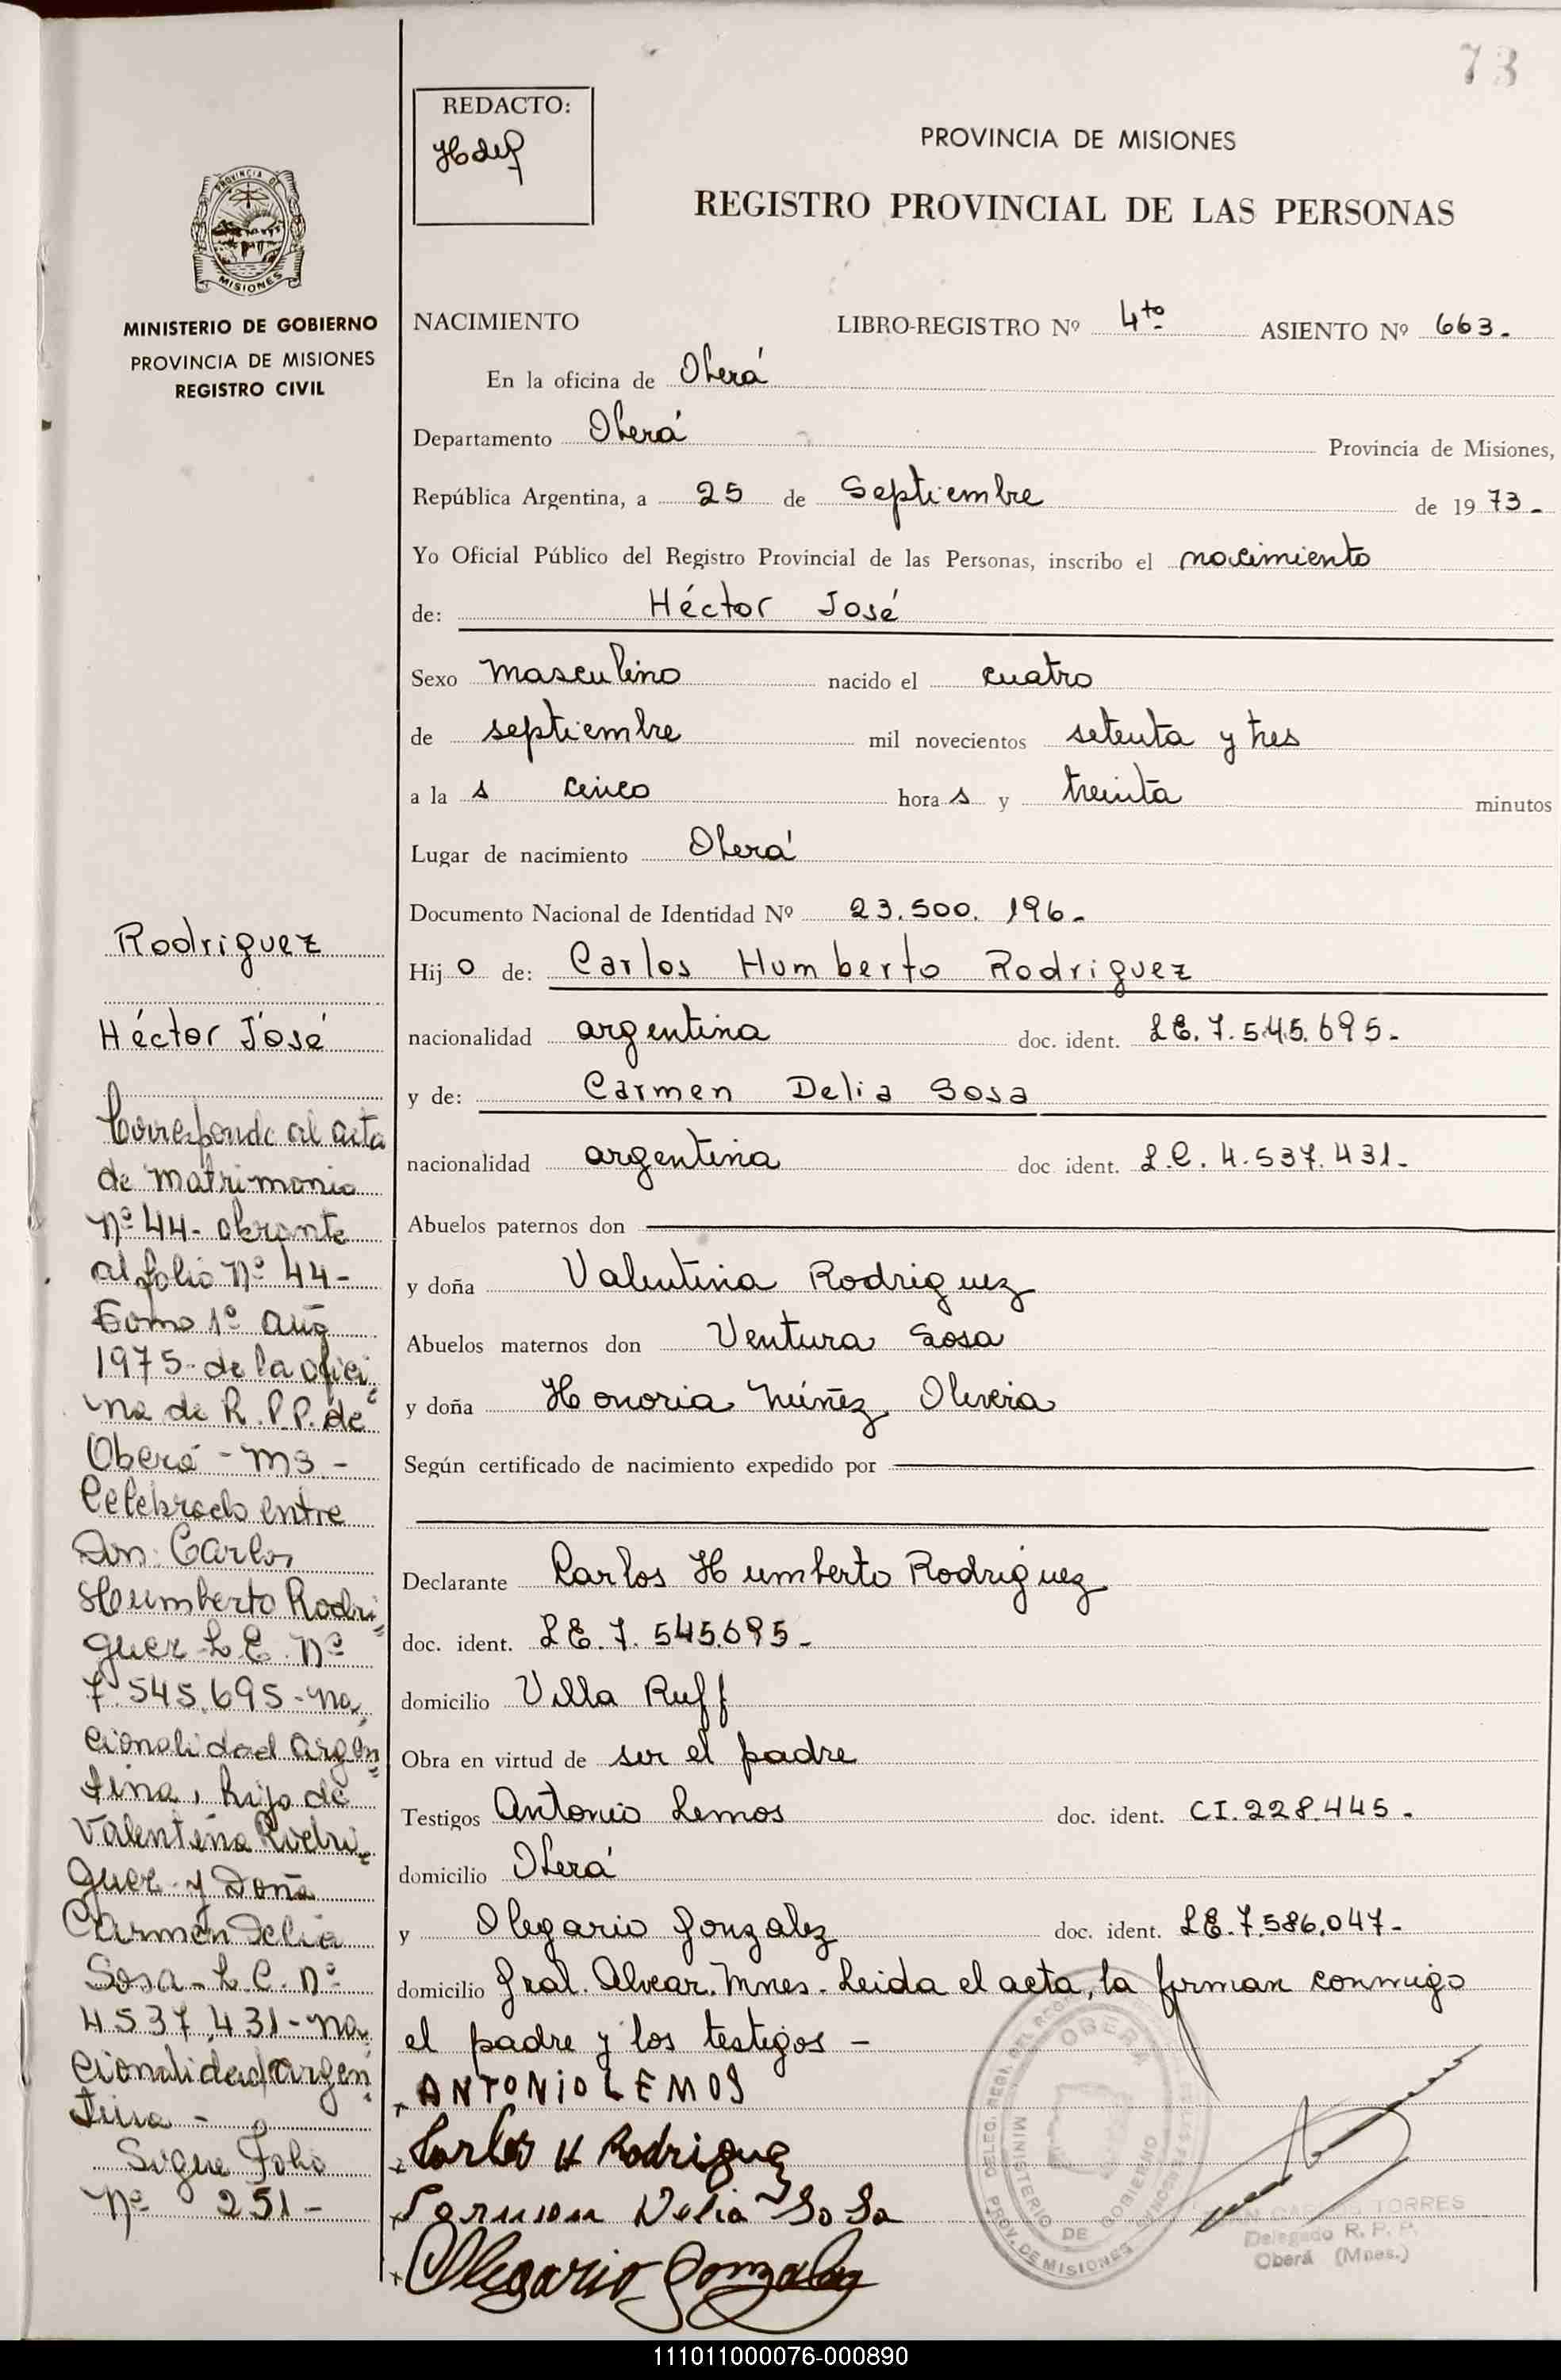 73
REDACTO:
PROVINCIA DE MISIONES
REGISTRO PROVINCIAL DE LAS PERSONAS
PROVINCIA DE
MISIONES
MINISTERIO DE GOBIERNO
PROVINCIA DE MISIONES
REGISTRO CIVIL
NACIMIENTO LIBRO-REGISTRO Nº 4to ASIENTO Nº 663.
En la oficina de Oberá
Departamento Oberá Provincia de Misiones,
República Argentina, a 25 de Septiembre de 1973.
Yo Oficial Público del Registro Provincial de las Personas, inscribo el nacimiento
de: Héctor José
Sexo masculino nacido el cuatro
de septiembre mil novecientos setenta y tres
a las cinco horas y treinta minutos
Lugar de nacimiento Oberá
Documento Nacional de Identidad Nº 23.500.196.
Hijo de: Carlos Humberto Rodriguez
nacionalidad argentina doc. ident. LE. 7.545.695.
y de: Carmen Delia Sosa
nacionalidad argentina doc. ident. L.C. 4.537.431.
Abuelos paternos don
y doña Valentina Rodriguez
Abuelos maternos don Ventura Sosa
y doña Honoria Núñez Olivera
Según certificado de nacimiento expedido por
Declarante Carlos Humberto Rodriguez
doc. ident. LE. 7.545.695.
domicilio Villa Ruff
Obra en virtud de ser el padre
Testigos Antonio Lemos doc. ident. CI. 228.445.
domicilio Oberá
y Olegario Gonzalez doc. ident. LE. 7.586.047.
domicilio Gral. Alvear. Mnes. Leida el acta, la firman conmigo
el padre y los testigos -
ANTONIO LEMOS
Carlos H Rodriguez
Carmen Delia Sosa
Olegario Gonzalez
Rodriguez
Héctor José
Corresponde al acta
de matrimonio
Nº 44- obrante
al folio Nº 44-
Tomo 1º año
1975- de la ofici
na de R.P.P. de
Oberá - Ms -
Celebrado entre
Don Carlos
Humberto Rodri
guez L.E. Nº
7.545.695- na
cionalidad argen
tina, hijo de
Valentina Rodri
guez y Doña
Carmen Delia
Sosa- L.C. Nº
4537.431- na
cionalidad argen
tina -
Sigue Folio
Nº 251-
OBERA
MINISTERIO DE GOBIERNO
PROV. DE MISIONES
TORRES
Delegado R. P. P.
Oberá (Mnes.)
111011000076-000890